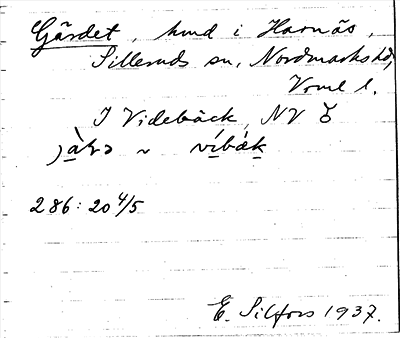 Gärdet, hmd i Harnäs,
Silleruds sn, Nordmarks hd,
Vrml l.
I Videbäck, NV
~ vibäk
286: 20 4/5
E. Silfors 1937.